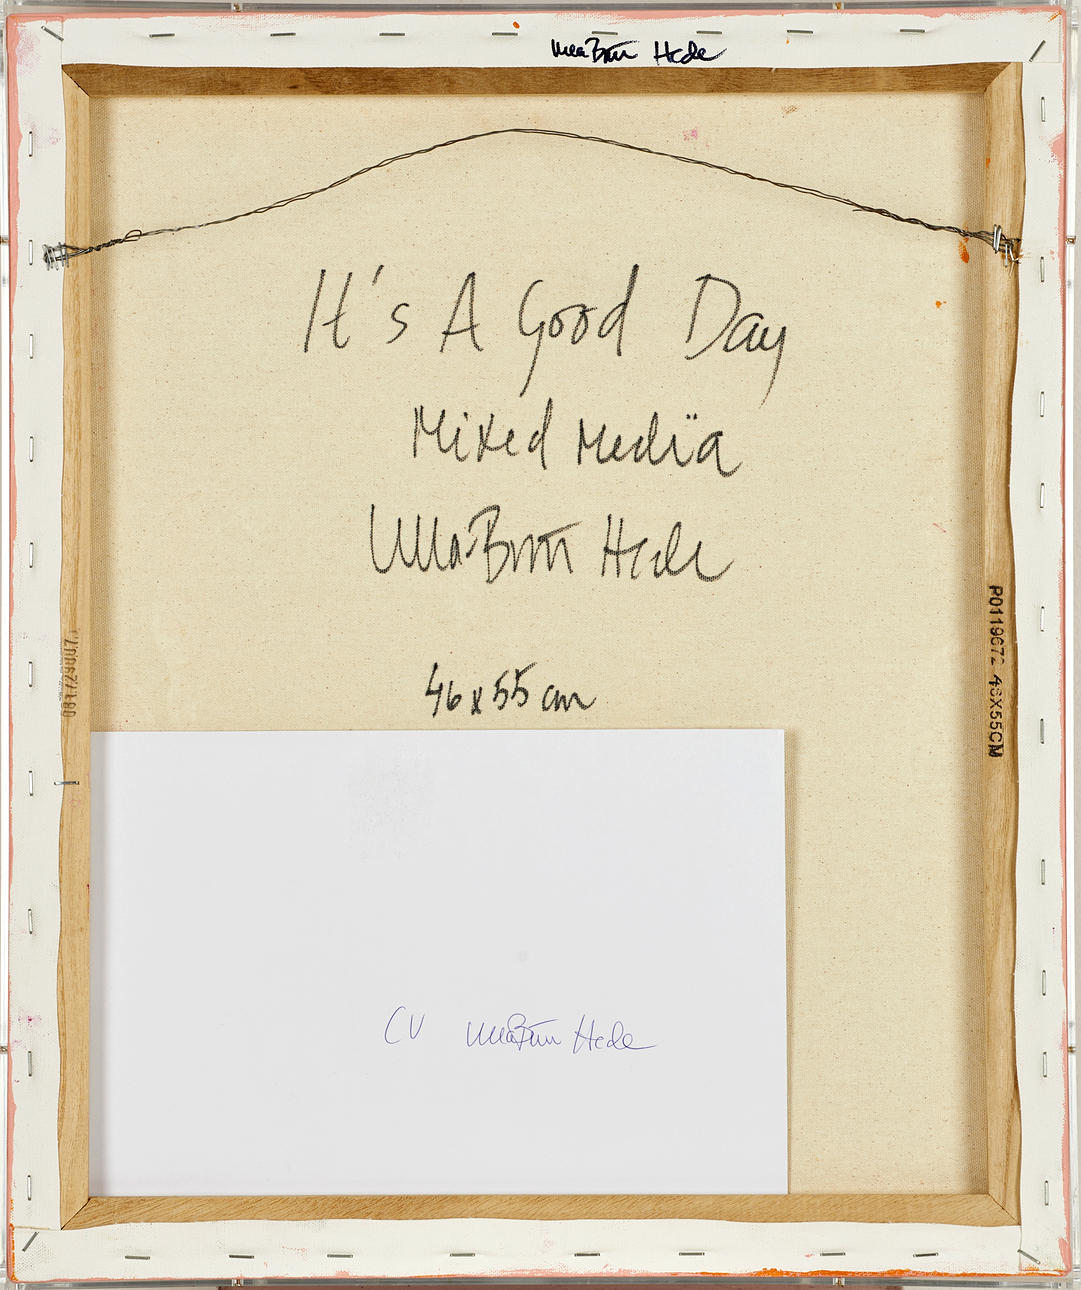 Ulla-Britt Hede
It's A Good Day
Mixed Media
Ulla-Britt Hede
46x55 cm
46X55CM
CV Ulla-Britt Hede